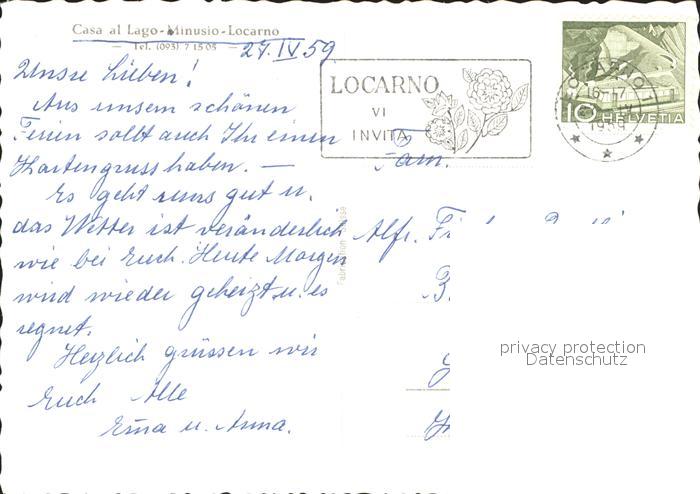 Casa al Lago-Minusio-Locarno
— Tel. (093) 7 15 05 — 27. IV 59
Unsre Lieben!
Aus unsern schönen
Ferien sollt auch Ihr einen
Kartengruss haben. —
Es geht uns gut u.
das Wetter ist veränderlich
wie bei Euch. Heute Morgen
wird wieder geheizt u. es
regnet.
Herzlich grüssen wir
Euch Alle
Erna u. Anna.
LOCARNO
VI
INVITA
LOCARNO 1
16-17
1959
10 HELVETIA
Fabrication Suisse
Fam.
Alfr.
privacy protection
Datenschutz